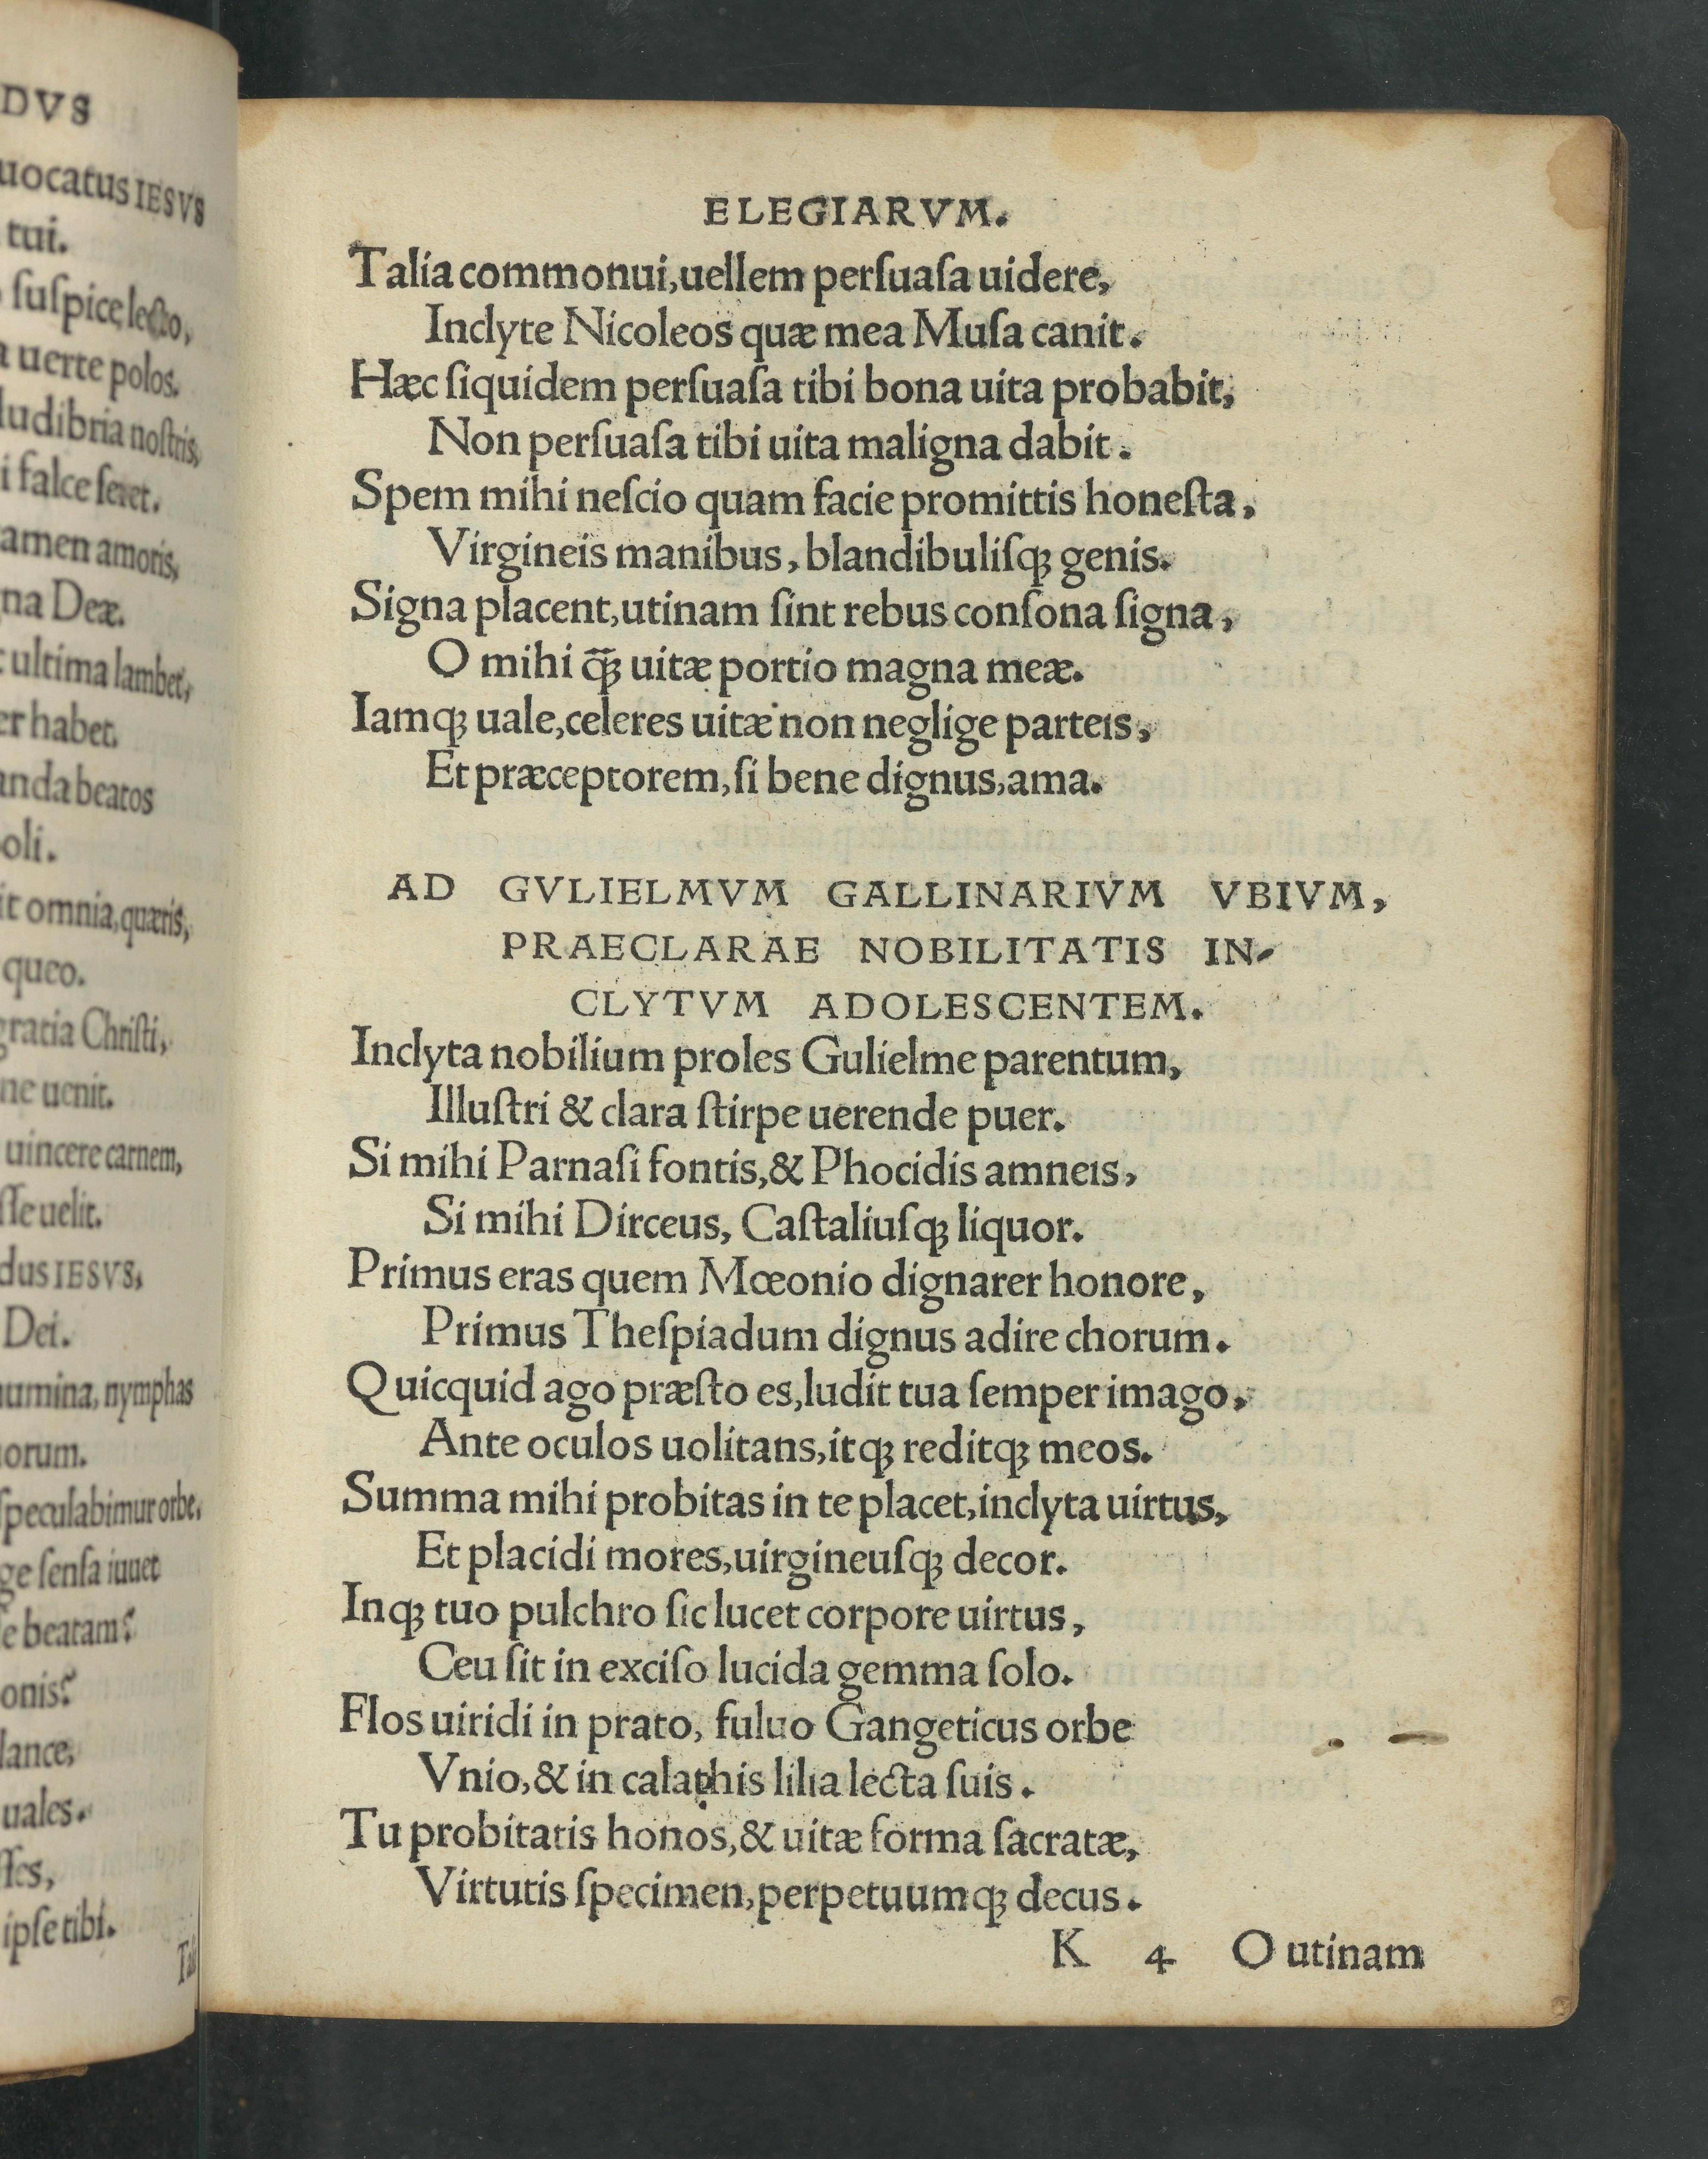 DVS
uocatus IESVS
tui.
ſuſpice, lecto,
uerte polos.
ludibria noſtris,
falce feret.
amen amoris,
na Deæ.
ultima lambet,
er habet.
anda beatos
oli.
it omnia, quæris,
queo.
gratia Chriſti,
ne uenit.
uincere carnem,
ſſe uelit.
dus IESVS,
Dei.
numina, nymphas
orum.
ſpeculabimur orbe,
ge ſenſa iuuet
e beatam?
onis?
lance,
uales.
ſſes,
ipſe tibi.
Tali
ELEGIARVM.
Talia commonui, uellem perſuaſa uidere,
Inclyte Nicoleos quæ mea Muſa canit.
Hæc ſiquidem perſuaſa tibi bona uita probabit,
Non perſuaſa tibi uita maligna dabit.
Spem mihi neſcio quam facie promittis honeſta,
Virgineis manibus, blandibuliſqꝫ genis.
Signa placent, utinam ſint rebus conſona ſigna,
O mihi q̄̄ꝫ uitæ portio magna meæ.
Iamqꝫ uale, celeres uitæ non neglige parteis,
Et præceptorem, ſi bene dignus, ama.
AD GVLIELMVM GALLINARIVM VBIVM,
PRAECLARAE NOBILITATIS IN-
CLYTVM ADOLESCENTEM.
Inclyta nobilium proles Gulielme parentum,
Illuſtri & clara ſtirpe uerende puer.
Si mihi Parnaſi fontis, & Phocidis amneis,
Si mihi Dirceus, Caſtaliuſqꝫ liquor.
Primus eras quem Mœonio dignarer honore,
Primus Theſpiadum dignus adire chorum.
Quicquid ago præſto es, ludit tua ſemper imago,
Ante oculos uolitans, itqꝫ reditqꝫ meos.
Summa mihi probitas in te placet, inclyta uirtus,
Et placidi mores, uirgineuſqꝫ decor.
Inqꝫ tuo pulchro ſic lucet corpore uirtus,
Ceu ſit in exciſo lucida gemma ſolo.
Flos uiridi in prato, fuluo Gangeticus orbe
Vnio, & in calathis lilia lecta ſuis.
Tu probitatis honos, & uitæ forma ſacratæ,
Virtutis ſpecimen, perpetuumqꝫ decus.
K 4 O utinam